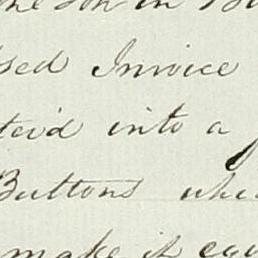 son in
sed Invoice
ter'd into a
Buttons whe
make it equ